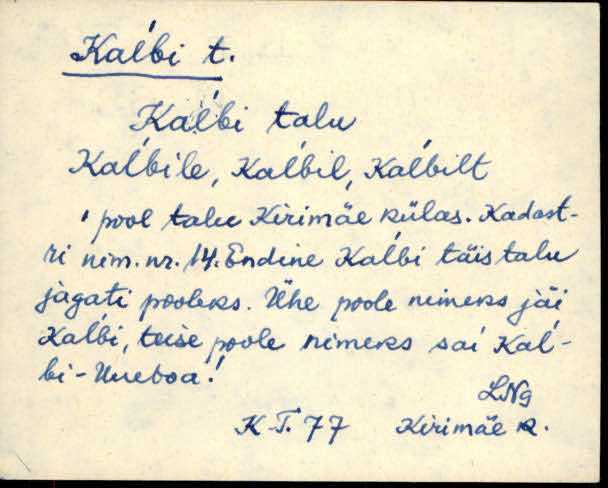 Kaĺbi t.
Kaĺbi talu
Kaĺbile, Kaĺbil, Kaĺbilt
pool talu Kirimäe külas. Kadast-
ri nim. nr. 14. Endine Kaĺbi täistalu
jagati pooleks. Ühe poole nimeks jäi
Kaĺbi, teise poole nimeks sai Kaĺ-
bi-Uuetoa.
LNg
K-T. 77 Kirimäe k.